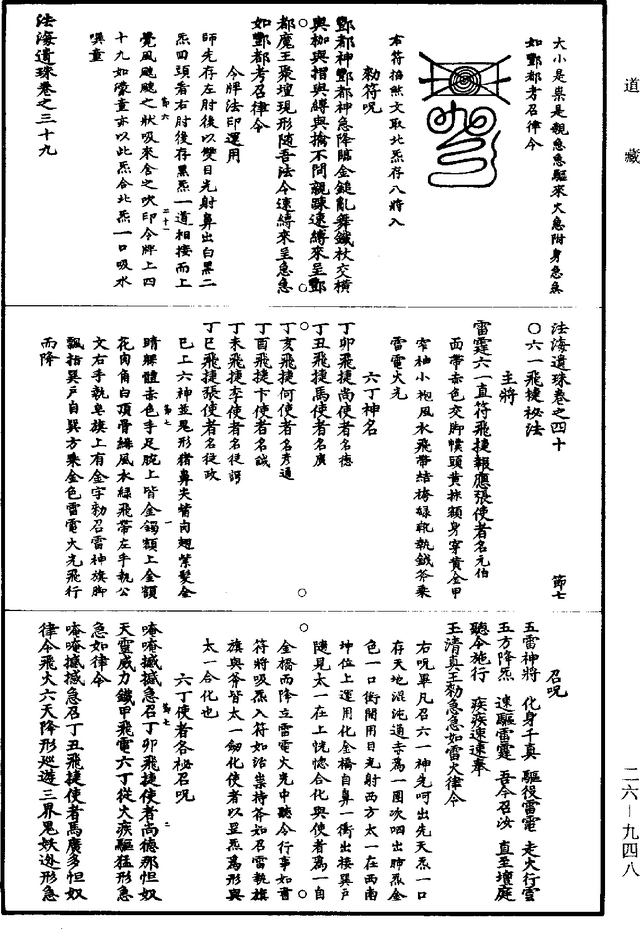 道藏
大小是祟是親急急驅來火急附身急急
如酆都考召律令
右符拍照文取北炁存八將入
勑符呪
酆都神酆都神急降臨金鎚亂舞鐵杖交橫
與枷與搥與縛與擒不問親踈速縛來呈酆
都魔王衆壇現形隨吾法令速縛來呈急急
如酆都考召律令
令牌法印運用
師先存左肘後以雙目光射鼻出白黑二
炁四頭看右肘後存黑炁一道相接而上
覺風颼颼之狀吸來含之吹印令牌上四
十九如蒙童亦以此炁合北炁一口吸水
噀童
法海遺珠卷之三十九
法海遺珠卷之四十
節七
○六一飛捷祕法
主將
雷霆六一直符飛捷報應張使者名元伯
面帶赤色交脚幞頭黃抹額身穿黃金甲
窄袖小袍風水飛帶結褲綠靴執鉞斧乘
雷電火光
六丁神名
丁卯飛捷尚使者名德
丁丑飛捷馬使者名廣
丁亥飛捷何使者名彥通
丁酉飛捷卞使者名誠
丁未飛捷李使者名從諤
丁巳飛捷張使者名從政
已上六神並鬼形猪鼻尖觜肉翅紫髮金
睛躶體赤色手足腕上皆金鐲額上金額
花肉角白頂骨絲風水綠飛帶左手執公
文右手執皂旗上有金字勑召雷神旗脚
飄指巽戶自巽方乘金色雷電火光飛行
而降
召呪
五雷神將 化身千真 驅役雷電 走火行雲
五方降炁 速驅雷霆 吾今召汝 直至壇庭
聽令施行 疾疾速速奉
玉清真王勑急急如雷火律令
右呪畢凡召六一神先呵出先天炁一口
存天地混沌通赤爲一團次咽出肺炁金
色一口銜間用目光射西方太一在西南
坤位上運用化金橋自鼻一衝出接巽戶
隨見太一在上恍惚合化與使者爲一自
金橋而降立雷電火光中聽令行事如書
符將吸炁入符如治祟持斧如召雷執旗
旗與斧皆太一劒化使者以罡炁爲形與
太一合化也
六丁使者各祕召呪
唵唵撼撼急召丁卯飛捷使者尚德那怛奴
天靈威力鐵甲飛電六丁從火疾驅猛形急
急如律令
唵唵撼撼急召丁丑飛捷使者馬廣多怛奴
律令飛火六天降形巡遊三界鬼妖迯形急
二六－九四八